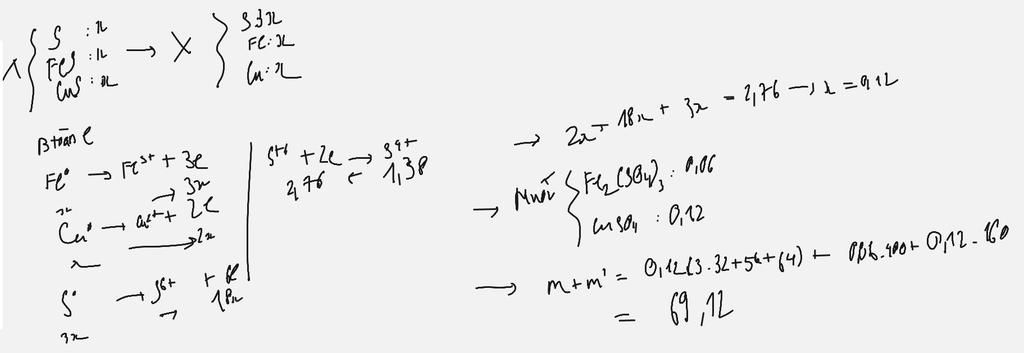 X { S : x → X { S : 3x
FeS : x Fe : x
CuS : x Cu : x
B toàn e
Fe⁰ → Fe³⁺ + 3e
x → 3x
Cu⁰ → Cu²⁺ + 2e
x → 2x
S⁰ → S⁶⁺ + 6e
3x → 18x
S⁺⁶ + 2e → S⁴⁺
2,76 ← 1,38
→ 2x + 18x + 3x = 2,76 → x = 0,12
→ Muối { Fe₂(SO₄)₃ : 0,06
CuSO₄ : 0,12
→ m + m' = 0,12(3.32+56+64) + 0,06.400 + 0,12.160
= 69,12